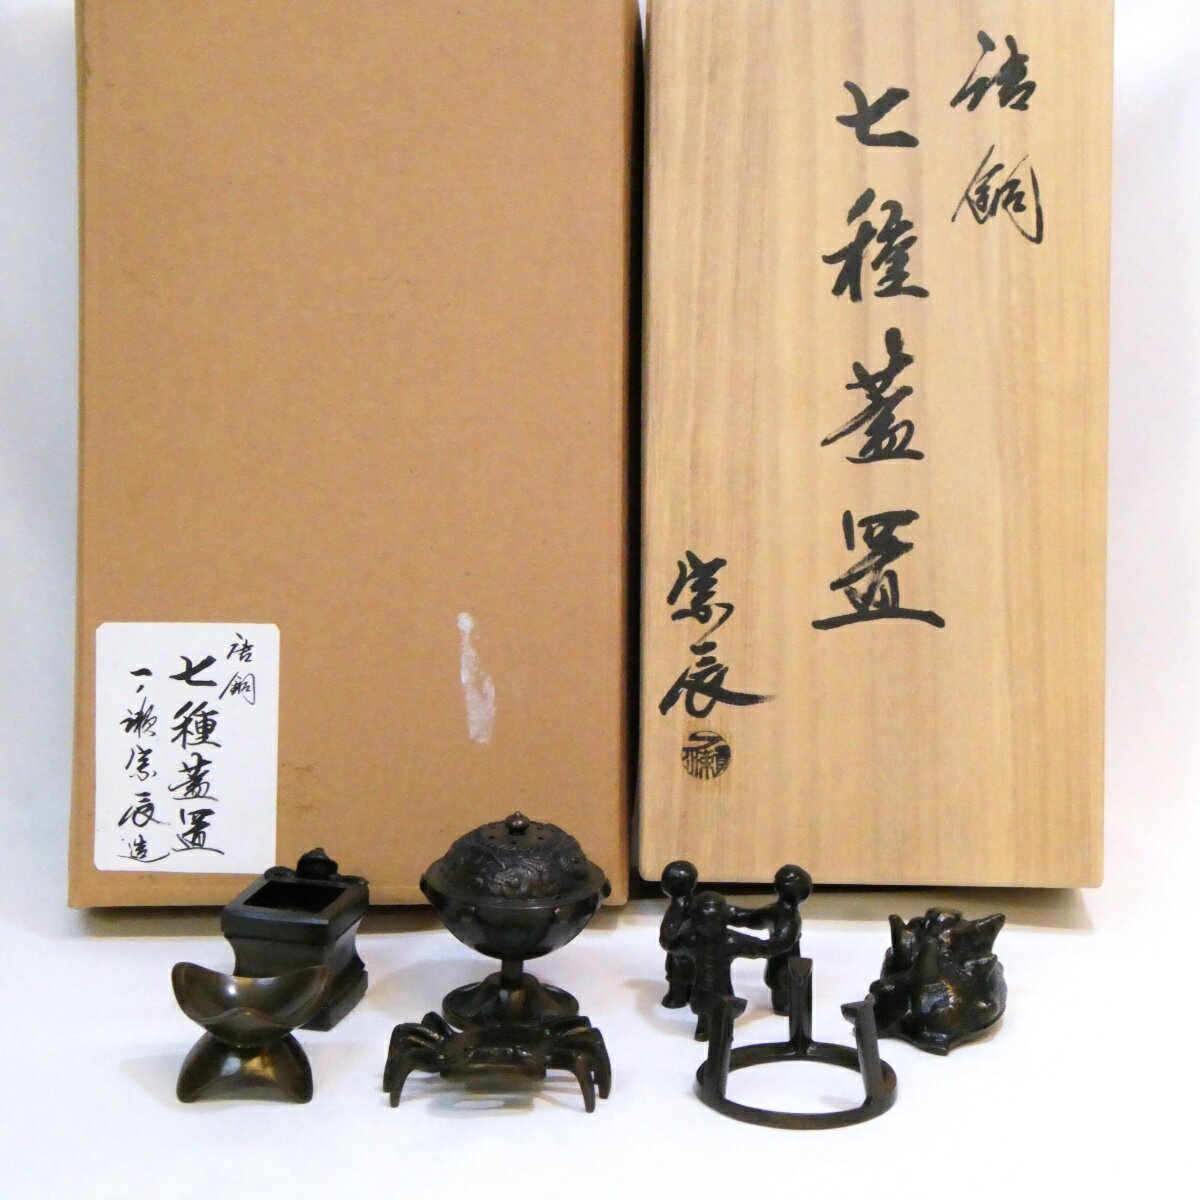 唐銅
七種蓋置
宗辰
唐銅
七種蓋置
一ノ瀬宗辰造